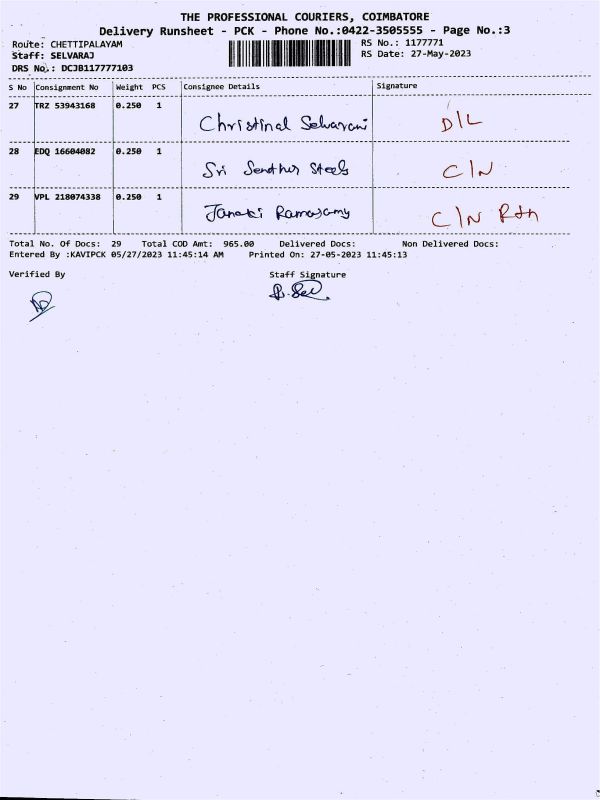 THE PROFESSIONAL COURIERS, COIMBATORE
Delivery Runsheet - PCK - Phone No.:0422-3505555 - Page No.:3
Route: CHETTIPALAYAM RS No.: 1177771
Staff: SELVARAJ RS Date: 27-May-2023
DRS No.: DCJB117777103
S No Consignment No Weight PCS Consignee Details Signature
27 TRZ 53943168 0.250 1 Christinal Selvarani D/L
28 EDQ 16604082 0.250 1 Sri Senthur Steels C/N
29 VPL 218074338 0.250 1 Janaki Ramasamy C/N Rtn
Total No. Of Docs: 29 Total COD Amt: 965.00 Delivered Docs: Non Delivered Docs:
Entered By :KAVIPCK 05/27/2023 11:45:14 AM Printed On: 27-05-2023 11:45:13
Verified By Staff Signature